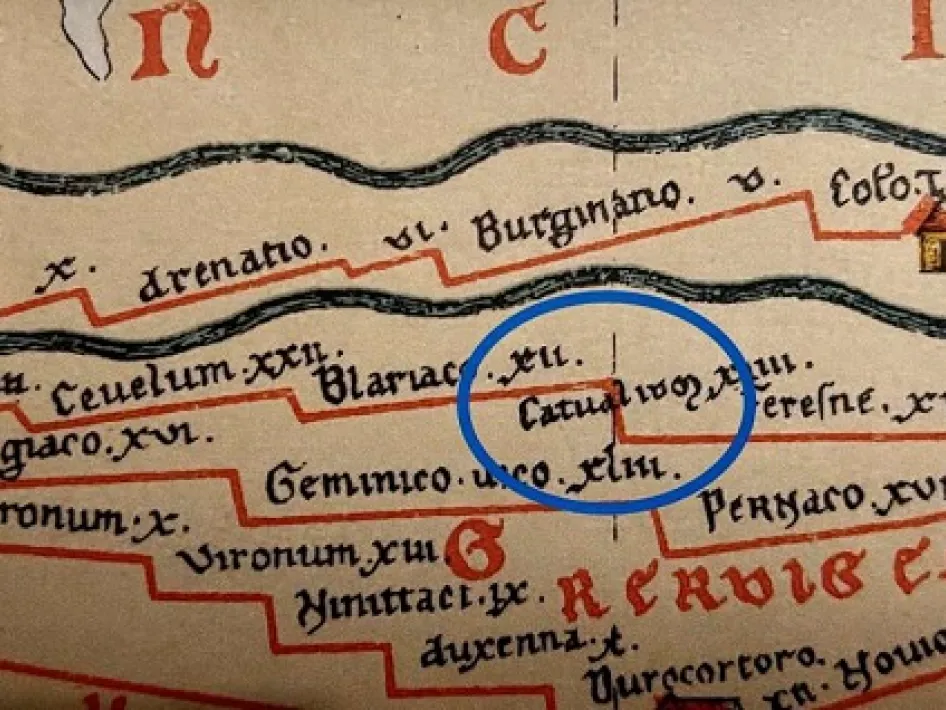 n c
v.
x. Arenatio. vi. Burginatio. Colo.T
Ceuelum.xxii. Blariaco.xii.
Catualium.xiiii. Feresne.x
giaco.xvi.
Geminico.uico.xliii.
Pernaco.xvi
ronum.x.
Vironum.xiii
G
NERVIGES.
Ninittaci.ix.
Auxenna.x.
Durocortoro.
xii. Noui